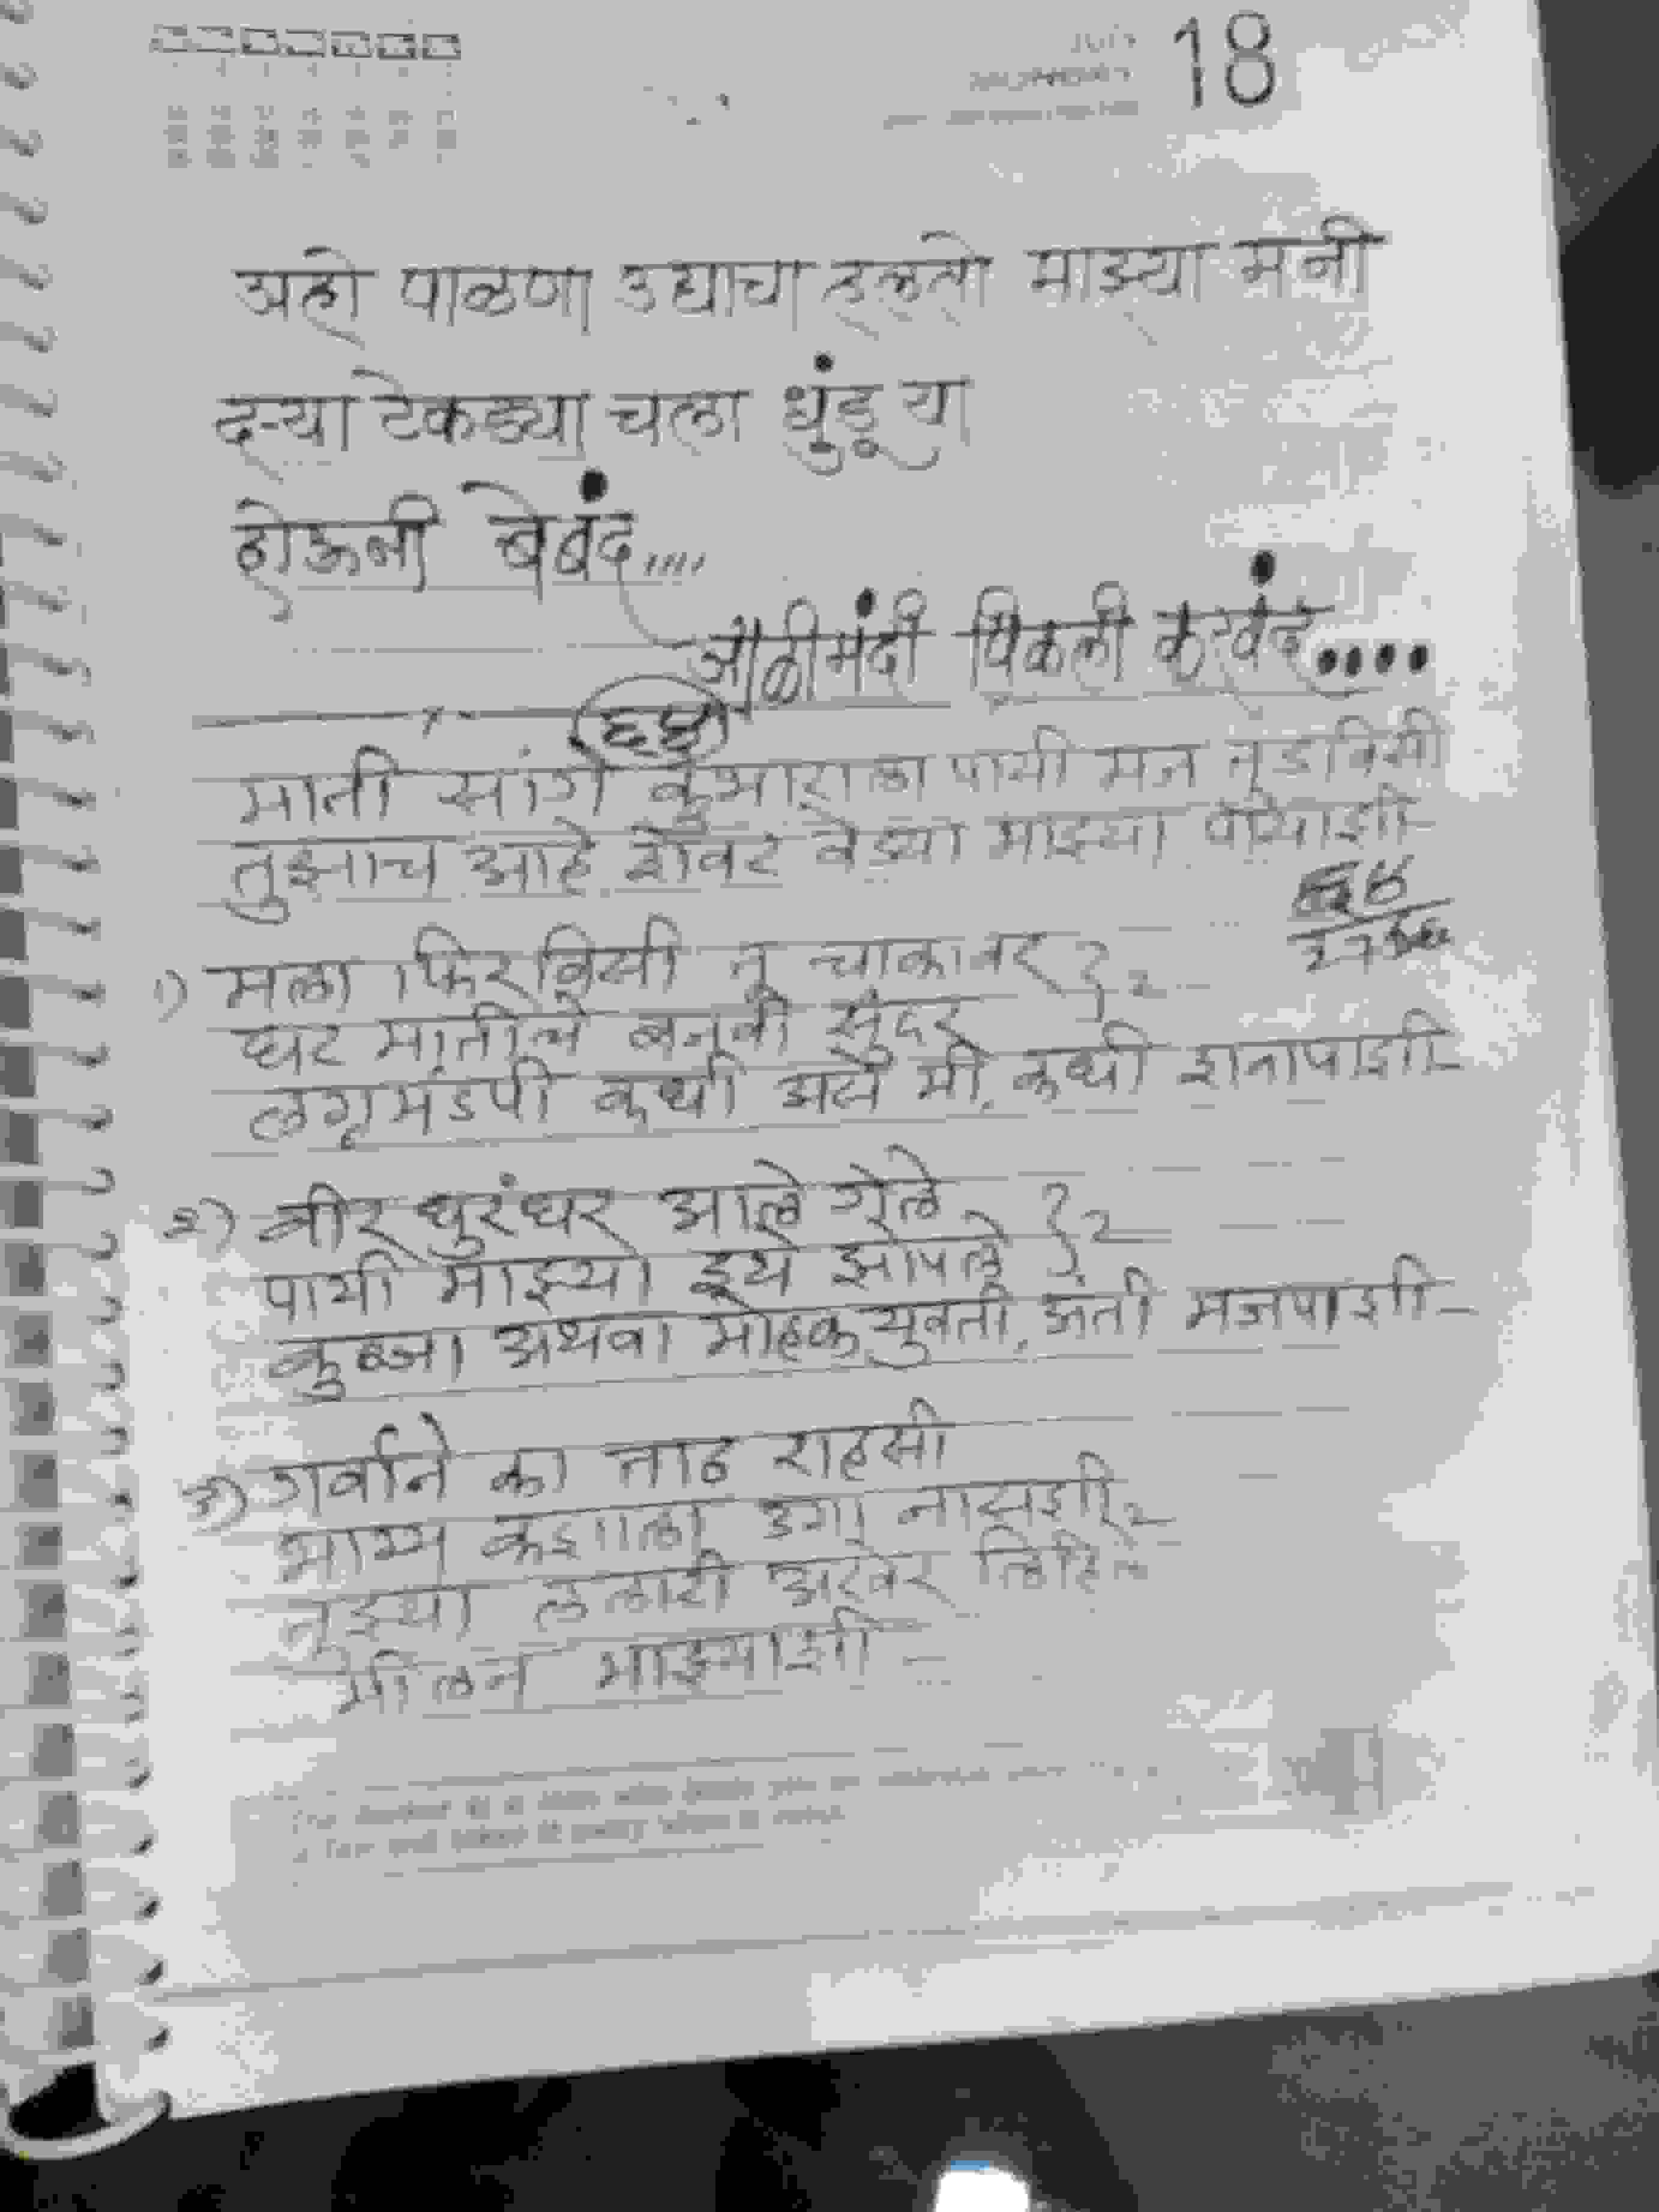 JULY 18
SATURDAY
अहो पाळणा उद्याचा हलतो माझ्या मनी
दऱ्या टेकड्या चला धुंडू या
होऊनी बेबंद....
जाळीमंदी पिकली करवंद....
माती सांगे कुंभाराला पायी मज तुडविसी
तुझाच आहे शेवट वेड्या माझ्या पायाशी
१) मला फिरविसी तू चाकावर } 2
घट मातीचे बनवी सुंदर
लग्नमंडपी कधी असे मी, कधी शवापाशी
२) वीर धुरंधर आले गेले } 2
पायी माझ्या इथे झोपले
कुब्जा अथवा मोहक युवती, अंती मजपाशी
३) गर्वाने का ताठ राहसी
भाग्य कशाला उगा नासशी 2
तुझ्या ललाटी अखेर लिहिले
मीलन माझ्याशी